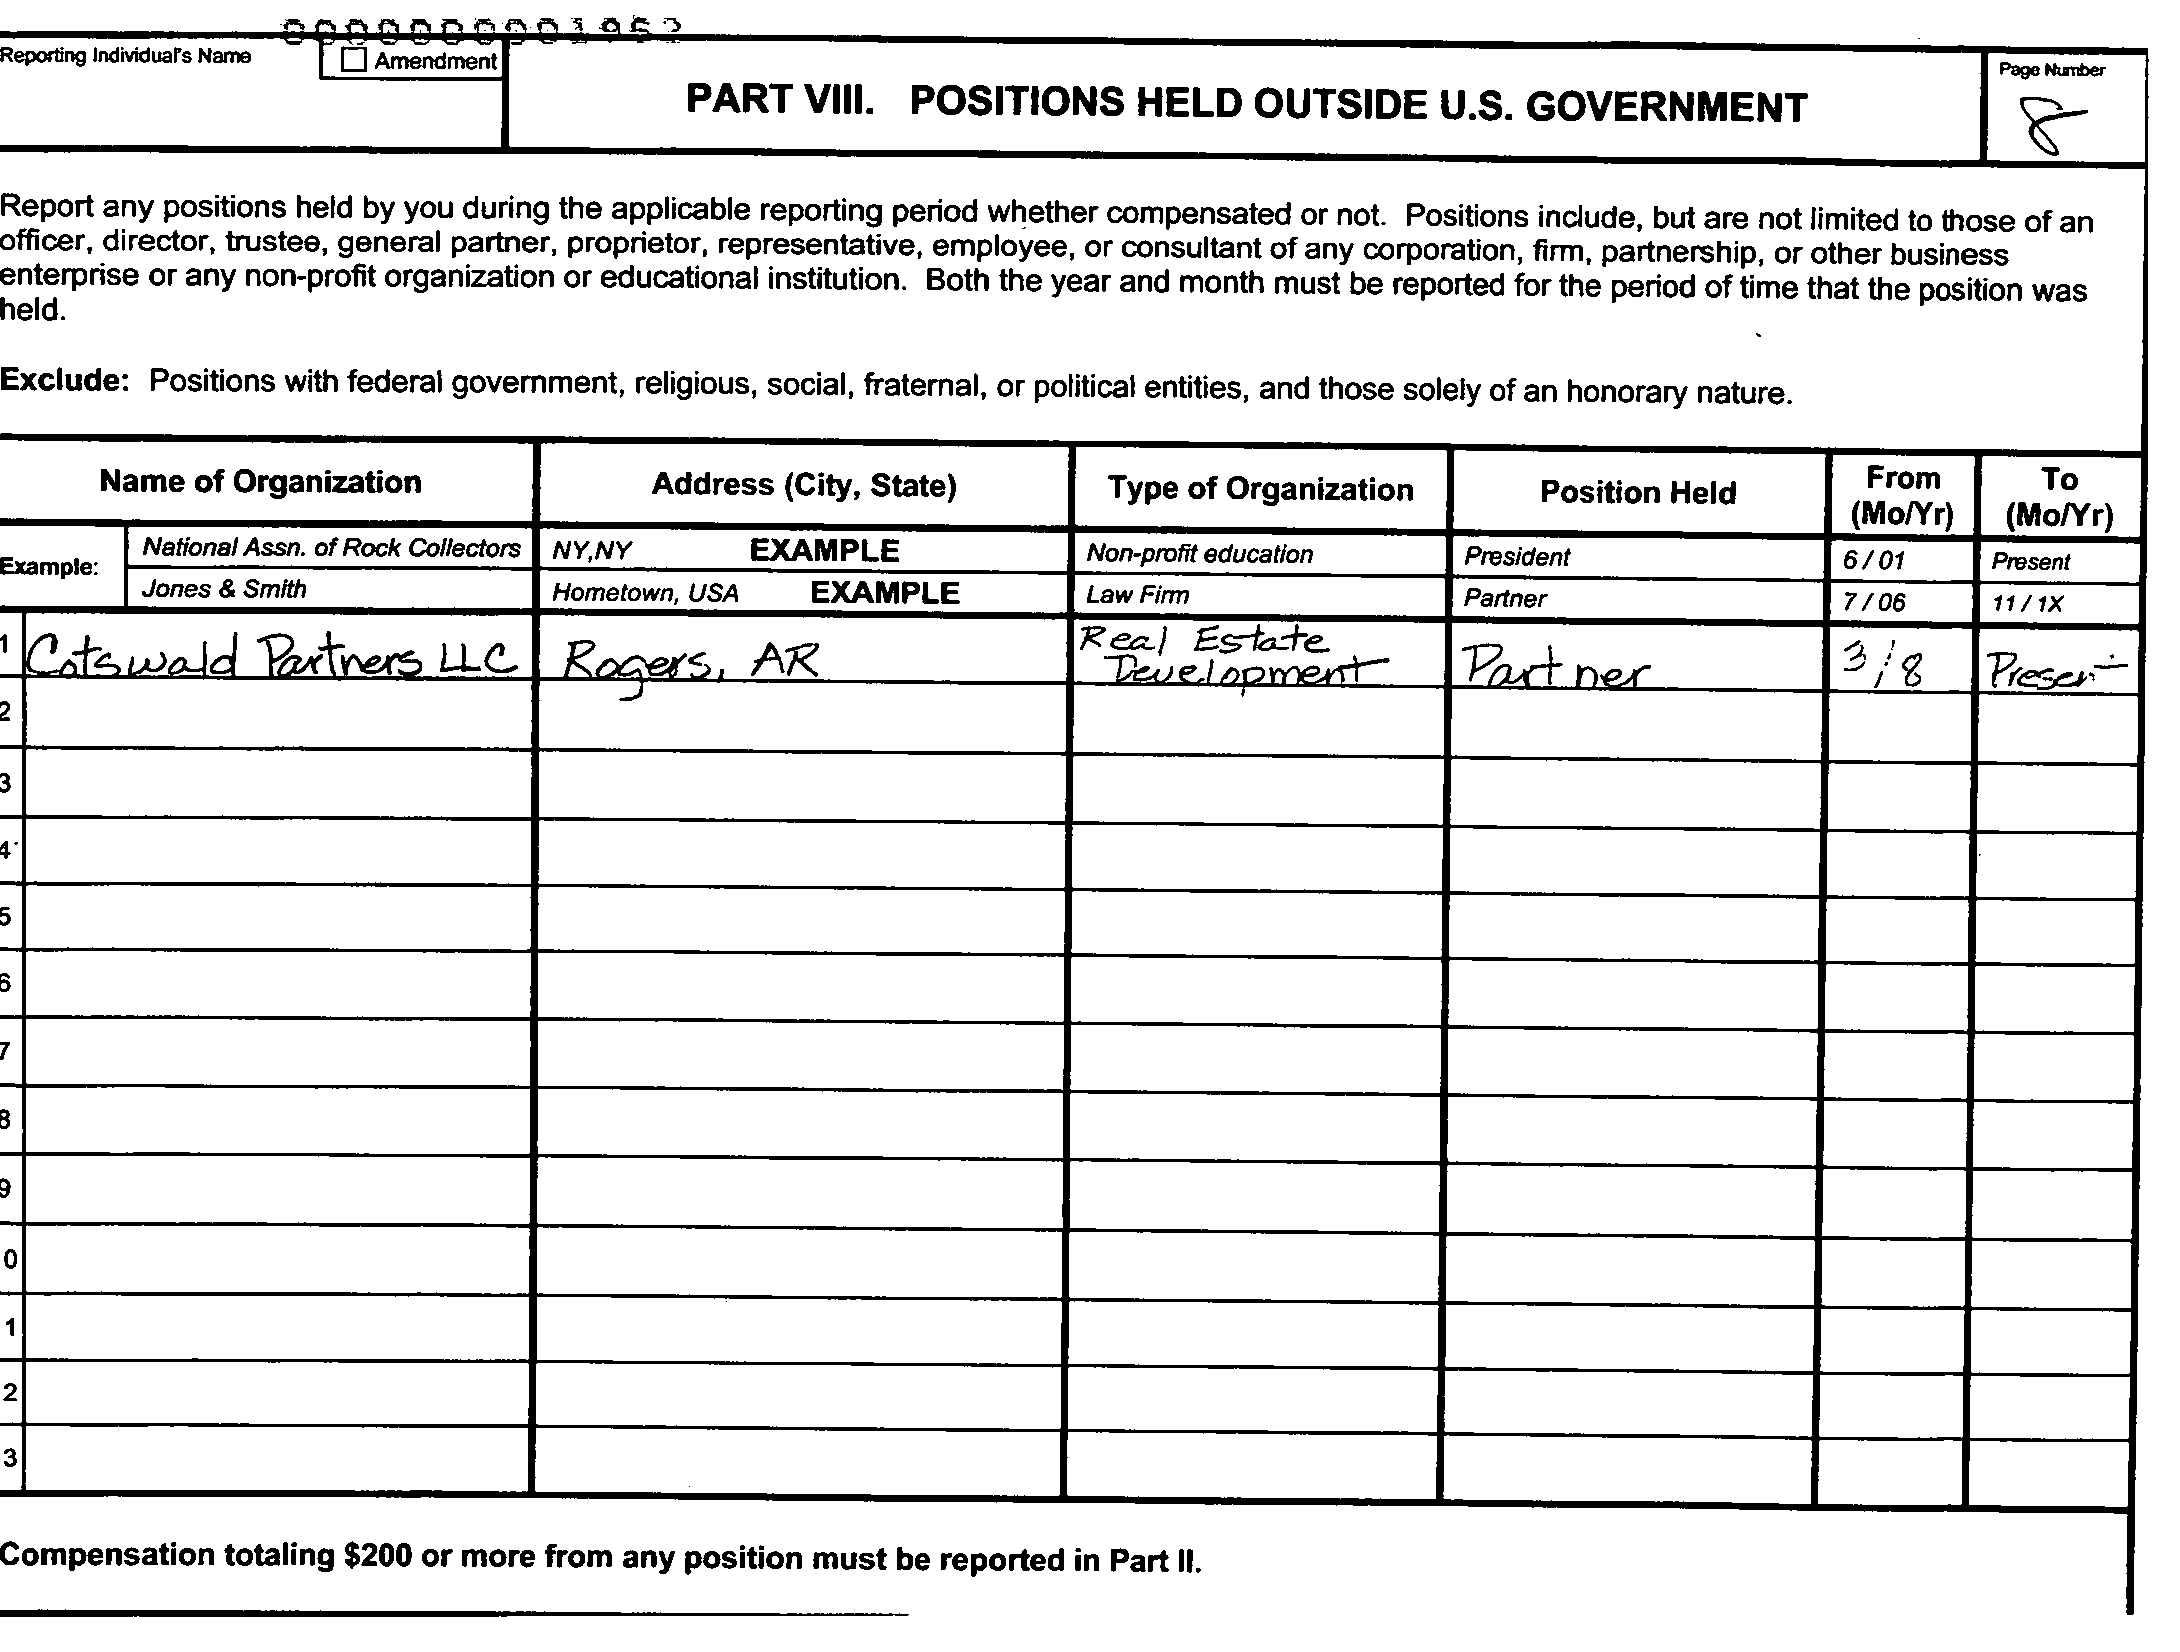 000000001952
Reporting Individual's Name
Amendment
PART VIII. POSITIONS HELD OUTSIDE U.S. GOVERNMENT
Page Number
8
Report any positions held by you during the applicable reporting period whether compensated or not. Positions include, but are not limited to those of an
officer, director, trustee, general partner, proprietor, representative, employee, or consultant of any corporation, firm, partnership, or other business
enterprise or any non-profit organization or educational institution. Both the year and month must be reported for the period of time that the position was
held.
Exclude: Positions with federal government, religious, social, fraternal, or political entities, and those solely of an honorary nature.
Name of Organization Address (City, State) Type of Organization Position Held From (Mo/Yr) To (Mo/Yr)
Example: National Assn. of Rock Collectors NY,NY EXAMPLE Non-profit education President 6 / 01 Present
Jones & Smith Hometown, USA EXAMPLE Law Firm Partner 7 / 06 11 / 1X
1 Cotswald Partners LLC Rogers, AR Real Estate Development Partner 3 / 8 Present
2
3
4
5
6
7
8
9
0
1
2
3
Compensation totaling $200 or more from any position must be reported in Part II.